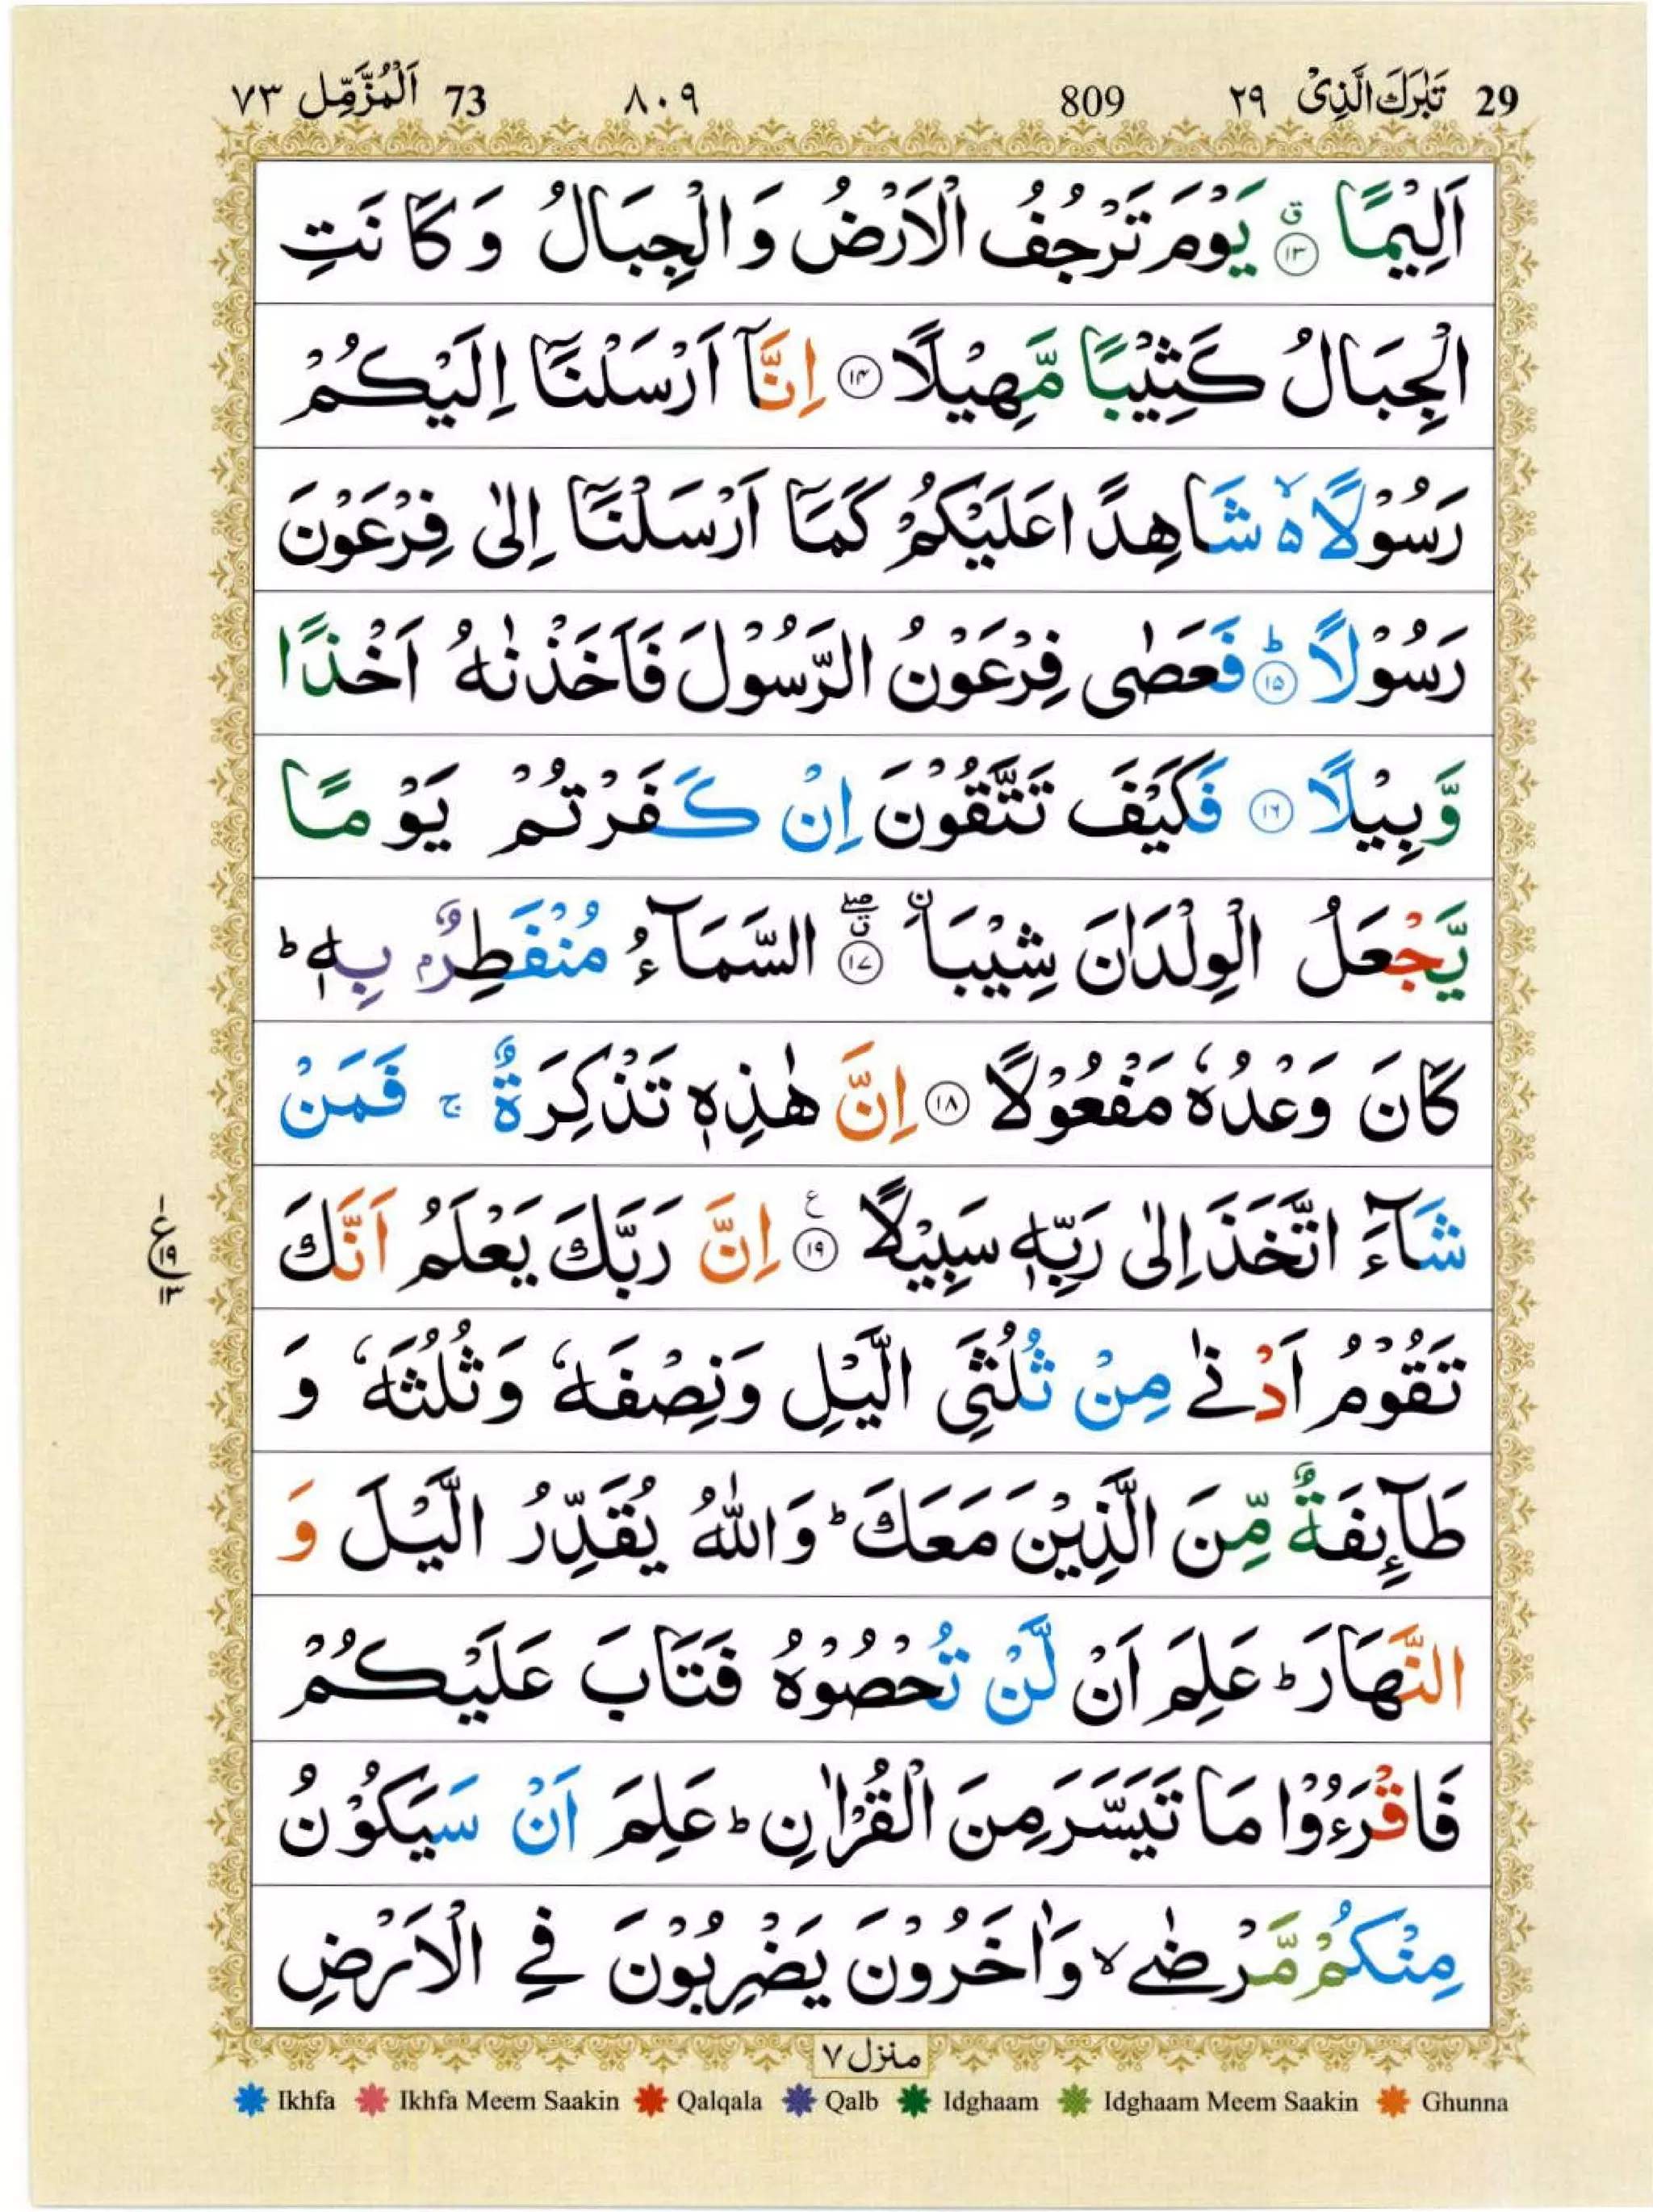 29 تَبٰرَكَ الَّذِیْ ۲۹ 809 ۸۰۹ 73 اَلْمُزَّمِّل ۷۳
اَلِیْمًا ۱۳ۗۖ یَوْمَ تَرْجُفُ الْاَرْضُ وَ الْجِبَالُ وَ كَانَتِ
الْجِبَالُ كَثِیْبًا مَّهِیْلًا ۱۴ اِنَّاۤ اَرْسَلْنَاۤ اِلَیْكُمْ
رَسُوْلًا ۙ۵ شَاهِدًا عَلَیْكُمْ كَمَاۤ اَرْسَلْنَاۤ اِلٰى فِرْعَوْنَ
رَسُوْلًا ؕ۱۵ فَعَصٰى فِرْعَوْنُ الرَّسُوْلَ فَاَخَذْنٰهُ اَخْذًا
وَّبِیْلًا ۱۶ فَكَیْفَ تَتَّقُوْنَ اِنْ كَفَرْتُمْ یَوْمًا
یَّجْعَلُ الْوِلْدَانَ شِیْبَاۨ ۱۷ۗۖ السَّمَآءُ مُنْفَطِرٌۢ بِهٖ ؕ
كَانَ وَعْدُهٗ مَفْعُوْلًا ۱۸ اِنَّ هٰذِهٖ تَذْكِرَةٌ ۚ فَمَنْ
شَآءَ اتَّخَذَ اِلٰى رَبِّهٖ سَبِیْلًا ۱۹ ع اِنَّ رَبَّكَ یَعْلَمُ اَنَّكَ
ع ۱ ۱۹ ۱۳
تَقُوْمُ اَدْنٰى مِنْ ثُلُثَیِ الَّیْلِ وَنِصْفَهٗ وَثُلُثَهٗ وَ
طَآىِٕفَةٌ مِّنَ الَّذِیْنَ مَعَكَ ؕ وَاللّٰهُ یُقَدِّرُ الَّیْلَ وَ
النَّهَارَ ؕ عَلِمَ اَنْ لَّنْ تُحْصُوْهُ فَتَابَ عَلَیْكُمْ
فَاقْرَءُوْا مَا تَیَسَّرَ مِنَ الْقُرْاٰنِ ؕ عَلِمَ اَنْ سَیَكُوْنُ
مِنْكُمْ مَّرْضٰى ۙ وَاٰخَرُوْنَ یَضْرِبُوْنَ فِی الْاَرْضِ
منزل ۷
Ikhfa Ikhfa Meem Saakin Qalqala Qalb Idghaam Idghaam Meem Saakin Ghunna